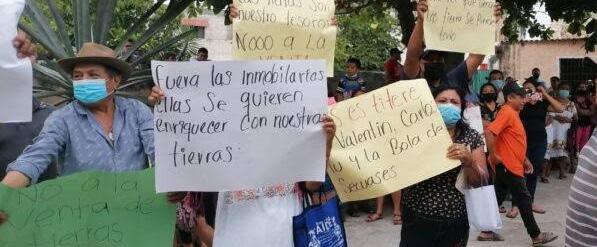 nuestro tesoro
NOOO a LA
Venta
la tierra se pone
todo
Fuera las Inmobilarias
Ellas Se quieren
enriquecer con nuestras
tierras.
s es titere
Valentin, Carlo
y la Bola de
Secuases
No a la
Venta de
tierras